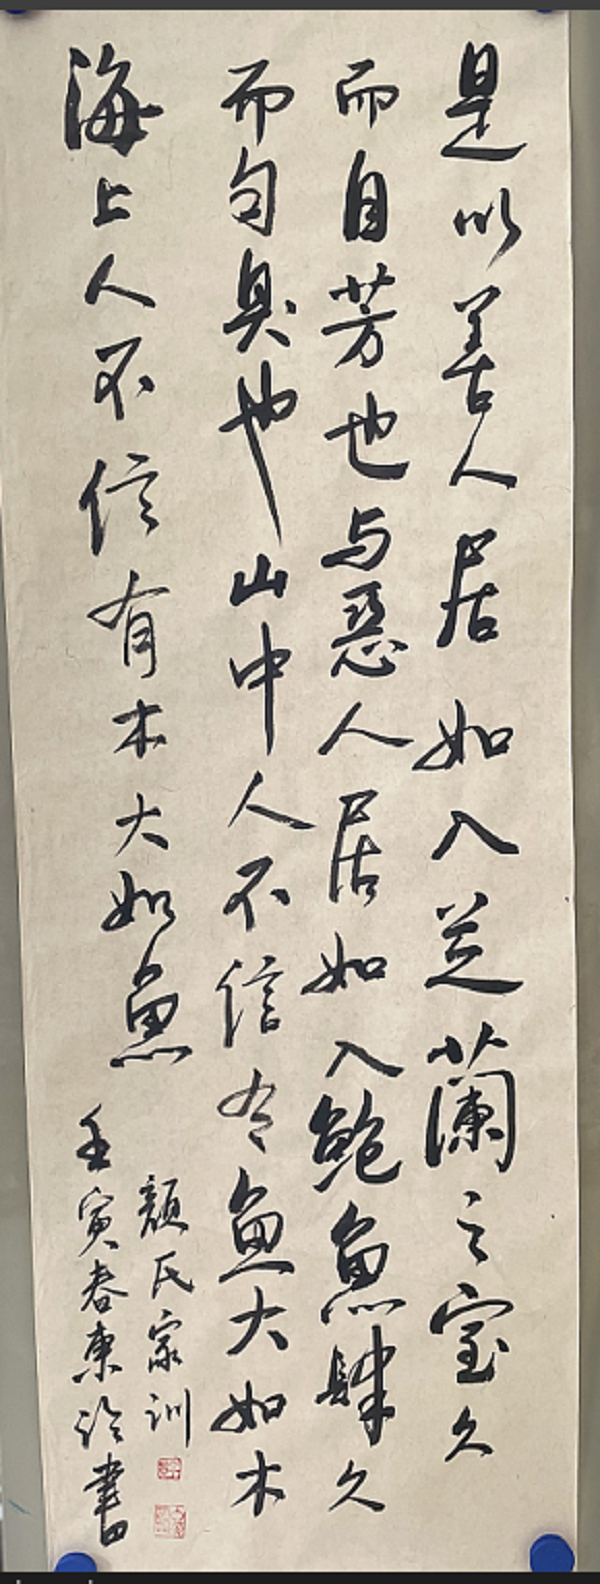 是以善人居如入芝蘭之室久
而自芳也与惡人居如入鮑魚肆久
而自臭也山中人不信有魚大如木
海上人不信有木大如魚
顏氏家訓
壬寅春東泠書